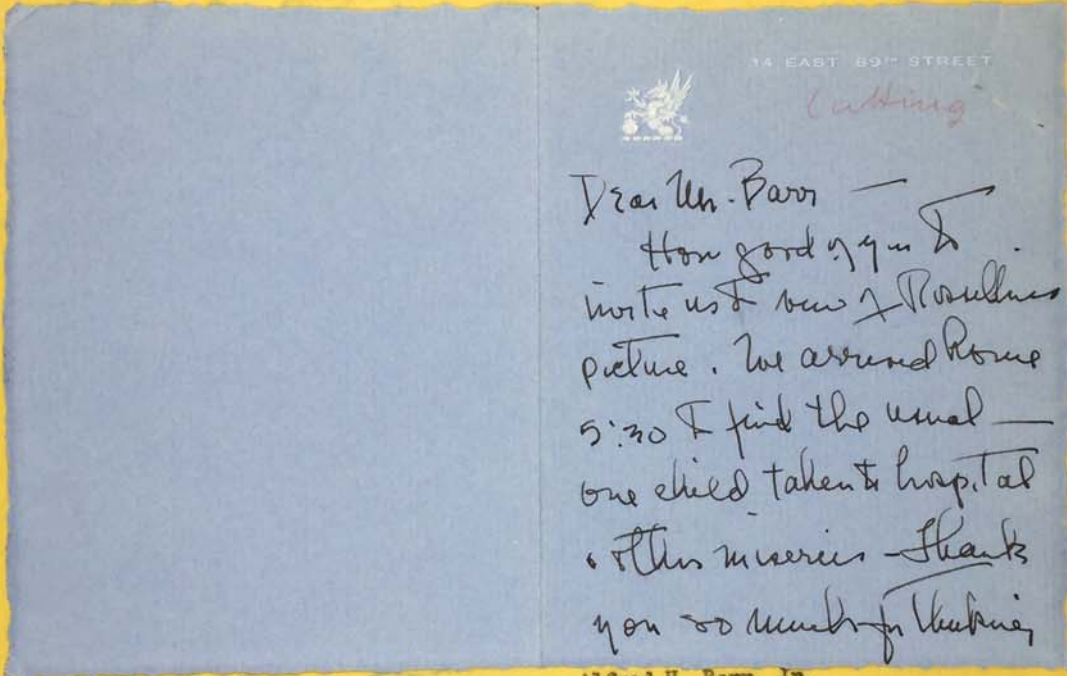 14 EAST 89TH STREET
Cutting
Dear Mr. Barr —
How good of you to
invite us to view of Rosellinis
picture. We arrived home
5:30 to find the usual —
one child taken to hospital
& other miseries – Thank
you so much for thinking
Alfred H. Barr, Jr